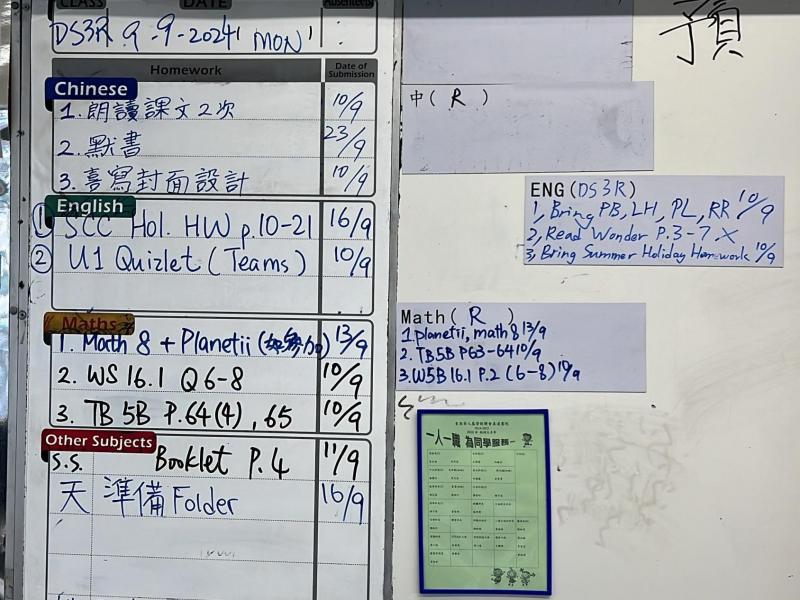 CLASS DATE Absentees
DS3R 9-9-2024 MON
Homework Date of Submission
Chinese
1. 朗讀課文2次 10/9
2. 默書 23/9
3. 喜寫封面設計 10/9
English
① SCC Hol. HW p.10-21 16/9
② U1 Quizlet (Teams) 10/9
Maths
1. Math 8 + Planetii (如參加) 13/9
2. WS 16.1 Q6-8 10/9
3. TB 5B P.64(4), 65 10/9
Other Subjects
S.S. Booklet P.4 11/9
天 準備Folder 16/9
預
中( R )
ENG(DS3R)
1, Bring PB, LH, PL, RR 10/9
2, Read Wonder P.3-7 X
3, Bring Summer Holiday Homework 10/9
Math( R )
1 planetii, math 8 13/9
2. TB5B P63-64 10/9
3. W5B 16.1 P.2 (6-8) 10/9
一人一職 為同學服務